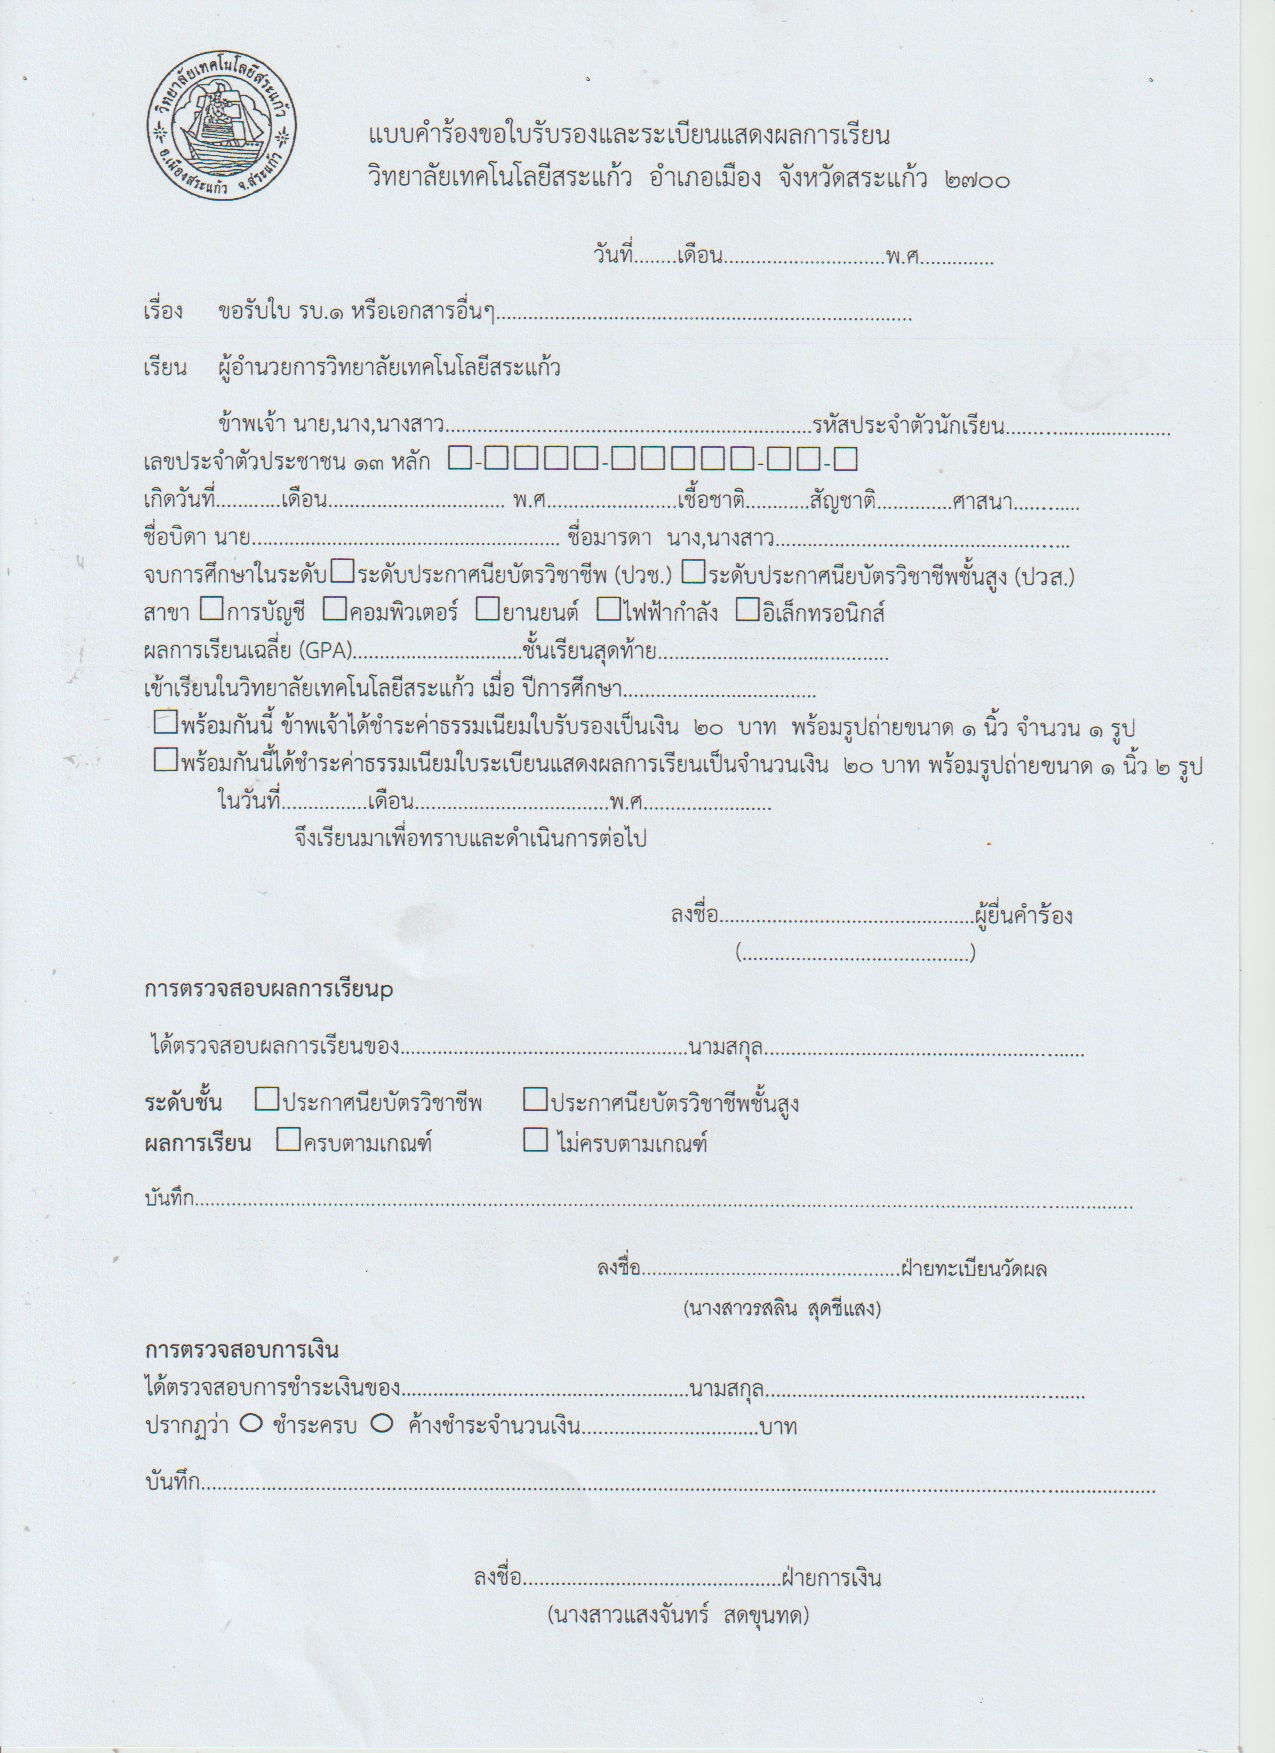 วิทยาลัยเทคโนโลยีสระแก้ว
อ.เมืองสระแก้ว จ.สระแก้ว
แบบคำร้องขอใบรับรองและระเบียนแสดงผลการเรียน
วิทยาลัยเทคโนโลยีสระแก้ว อำเภอเมือง จังหวัดสระแก้ว ๒๗๐๐
วันที่........เดือน..............................พ.ศ..............
เรื่อง ขอรับใบ รบ.๑ หรือเอกสารอื่นๆ..............................................................................
เรียน ผู้อำนวยการวิทยาลัยเทคโนโลยีสระแก้ว
ข้าพเจ้า นาย,นาง,นางสาว.....................................................................รหัสประจำตัวนักเรียน...............................
เลขประจำตัวประชาชน ๑๓ หลัก □-□□□□-□□□□□-□□-□
เกิดวันที่............เดือน................................. พ.ศ........................เชื้อชาติ............สัญชาติ..............ศาสนา............
ชื่อบิดา นาย.......................................................... ชื่อมารดา นาง,นางสาว.......................................................
จบการศึกษาในระดับ□ระดับประกาศนียบัตรวิชาชีพ (ปวช.) □ระดับประกาศนียบัตรวิชาชีพชั้นสูง (ปวส.)
สาขา □การบัญชี □คอมพิวเตอร์ □ยานยนต์ □ไฟฟ้ากำลัง □อิเล็กทรอนิกส์
ผลการเรียนเฉลี่ย (GPA)................................ชั้นเรียนสุดท้าย...........................................
เข้าเรียนในวิทยาลัยเทคโนโลยีสระแก้ว เมื่อ ปีการศึกษา....................................
□พร้อมกันนี้ ข้าพเจ้าได้ชำระค่าธรรมเนียมใบรับรองเป็นเงิน ๒๐ บาท พร้อมรูปถ่ายขนาด ๑ นิ้ว จำนวน ๑ รูป
□พร้อมกันนี้ได้ชำระค่าธรรมเนียมใบระเบียนแสดงผลการเรียนเป็นจำนวนเงิน ๒๐ บาท พร้อมรูปถ่ายขนาด ๑ นิ้ว ๒ รูป
ในวันที่................เดือน....................................พ.ศ........................
จึงเรียนมาเพื่อทราบและดำเนินการต่อไป
ลงชื่อ................................................ผู้ยื่นคำร้อง
(...........................................)
การตรวจสอบผลการเรียนp
ได้ตรวจสอบผลการเรียนของ......................................................นามสกุล............................................................
ระดับชั้น □ประกาศนียบัตรวิชาชีพ □ประกาศนียบัตรวิชาชีพชั้นสูง
ผลการเรียน □ครบตามเกณฑ์ □ ไม่ครบตามเกณฑ์
บันทึก................................................................................................................................................................
ลงชื่อ.................................................ฝ่ายทะเบียนวัดผล
(นางสาวรสลิน สุดชีแสง)
การตรวจสอบการเงิน
ได้ตรวจสอบการชำระเงินของ......................................................นามสกุล............................................................
ปรากฏว่า ○ ชำระครบ ○ ค้างชำระจำนวนเงิน.................................บาท
บันทึก...................................................................................................................................................................
ลงชื่อ.................................................ฝ่ายการเงิน
(นางสาวแสงจันทร์ สดขุนทด)